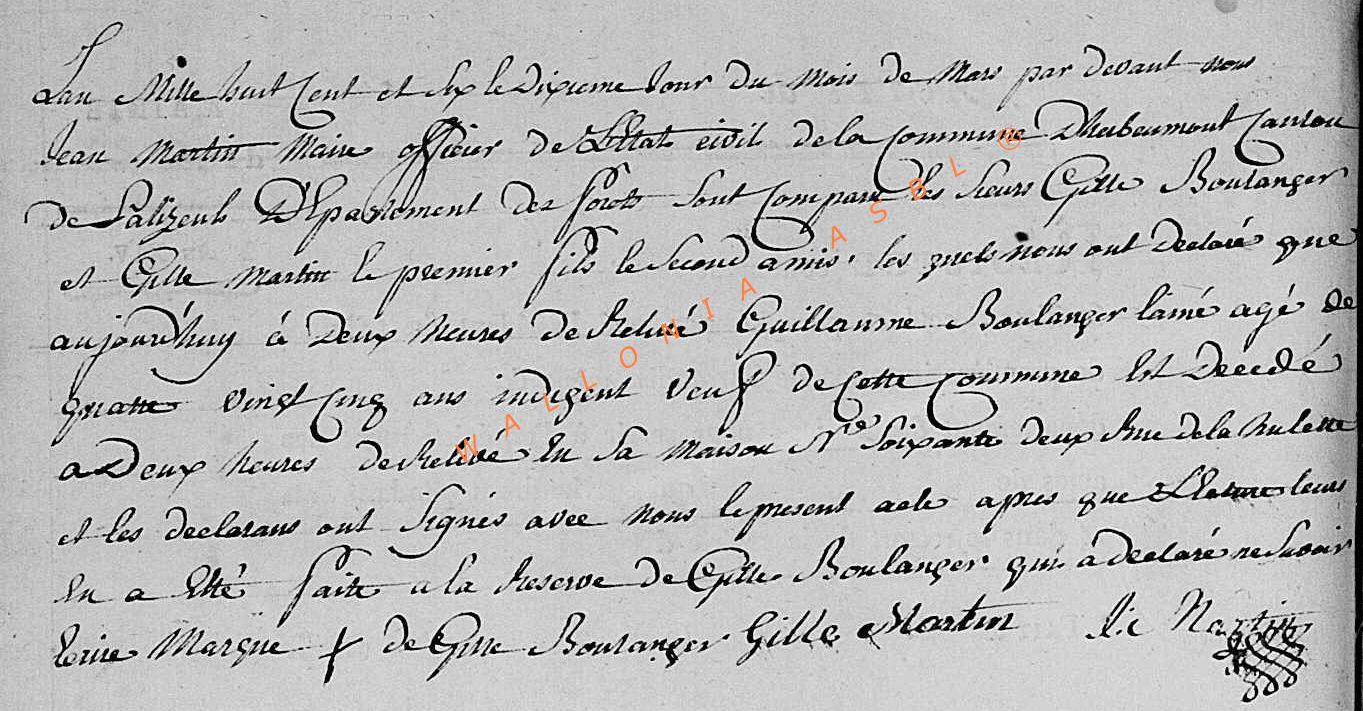 Lan Mille huit Cent et Six le Dixieme Jour du Mois de Mars par devant nous
Jean Martin Maire officier de LEtat civil de la Commune Dherbeumont Canton
de Palizeul Departement des forets Sont Comparu les Sieurs Gille Boulanger
et Gille Martin le premier fils le Second amis, les quels nous ont declaré que
aujourd'huy á Deux heures de Relevé Guillaume Boulanger lainé agé de
quatre vingt Cinq ans indigent veuf de Cette Commune Est Decedé
a Deux heures de Relevé En Sa Maison No Soixante deux Rue de la hulette
et les declarans ont Signés avec nous le present acte apres que Lecture leurs
En a Etté faite a la Reserve de Gille Boulanger qui a declaré ne Savoir
Ecrire Marque + de Gille Boulanger Gille Martin J: Martin
WALLONIA ASBL ®